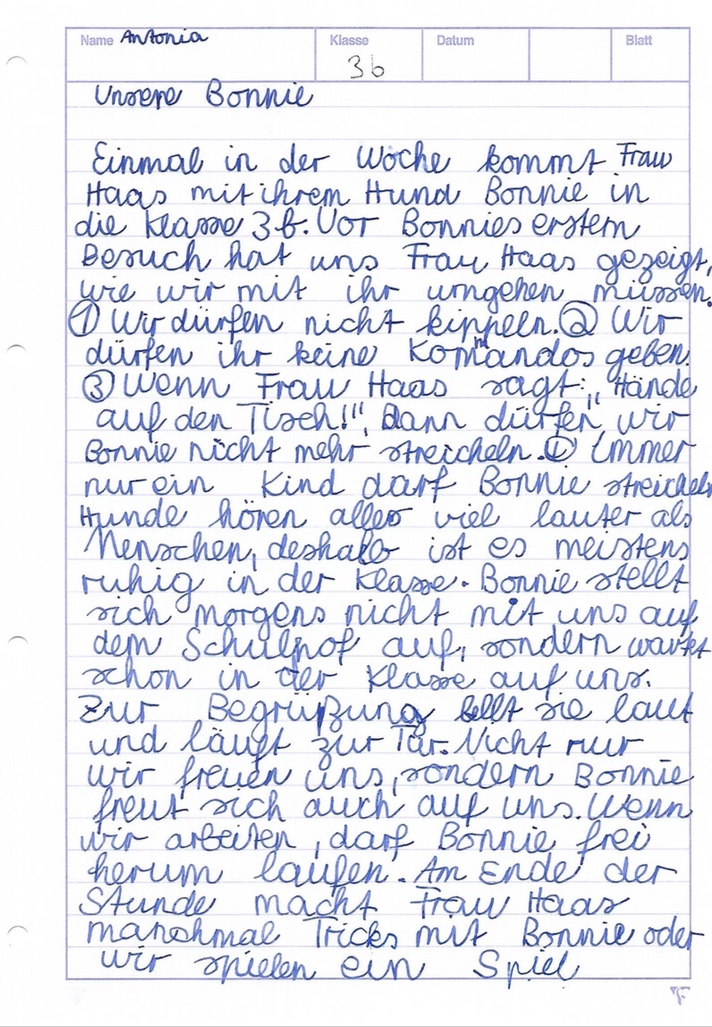 Name Antonia Klasse 3b Datum Blatt
Unsere Bonnie
Einmal in der Woche kommt Frau
Haas mit ihrem Hund Bonnie in
die Klasse 3b. Vor Bonnies erstem
Besuch hat uns Frau Haas gezeigt,
wie wir mit ihr umgehen müssen.
① Wir dürfen nicht kippeln. ② Wir
dürfen ihr keine Kommandos geben.
③ Wenn Frau Haas sagt: „Hände
auf den Tisch!", Dann dürfen wir
Bonnie nicht mehr streicheln. ④ Immer
nur ein Kind darf Bonnie streicheln
Hunde hören alles viel lauter als
Menschen, deshalb ist es meistens
ruhig in der Klasse. Bonnie stellt
sich morgens nicht mit uns auf
dem Schulhof auf, sondern wartet
schon in der Klasse auf uns.
Zur Begrüßung bellt sie laut
und läuft zur Tür. Nicht nur
wir freuen uns, sondern Bonnie
freut sich auch auf uns. Wenn
wir arbeiten, darf Bonnie frei
herum laufen. Am Ende der
Stunde macht Frau Haas
manchmal Tricks mit Bonnie oder
wir spielen ein Spiel